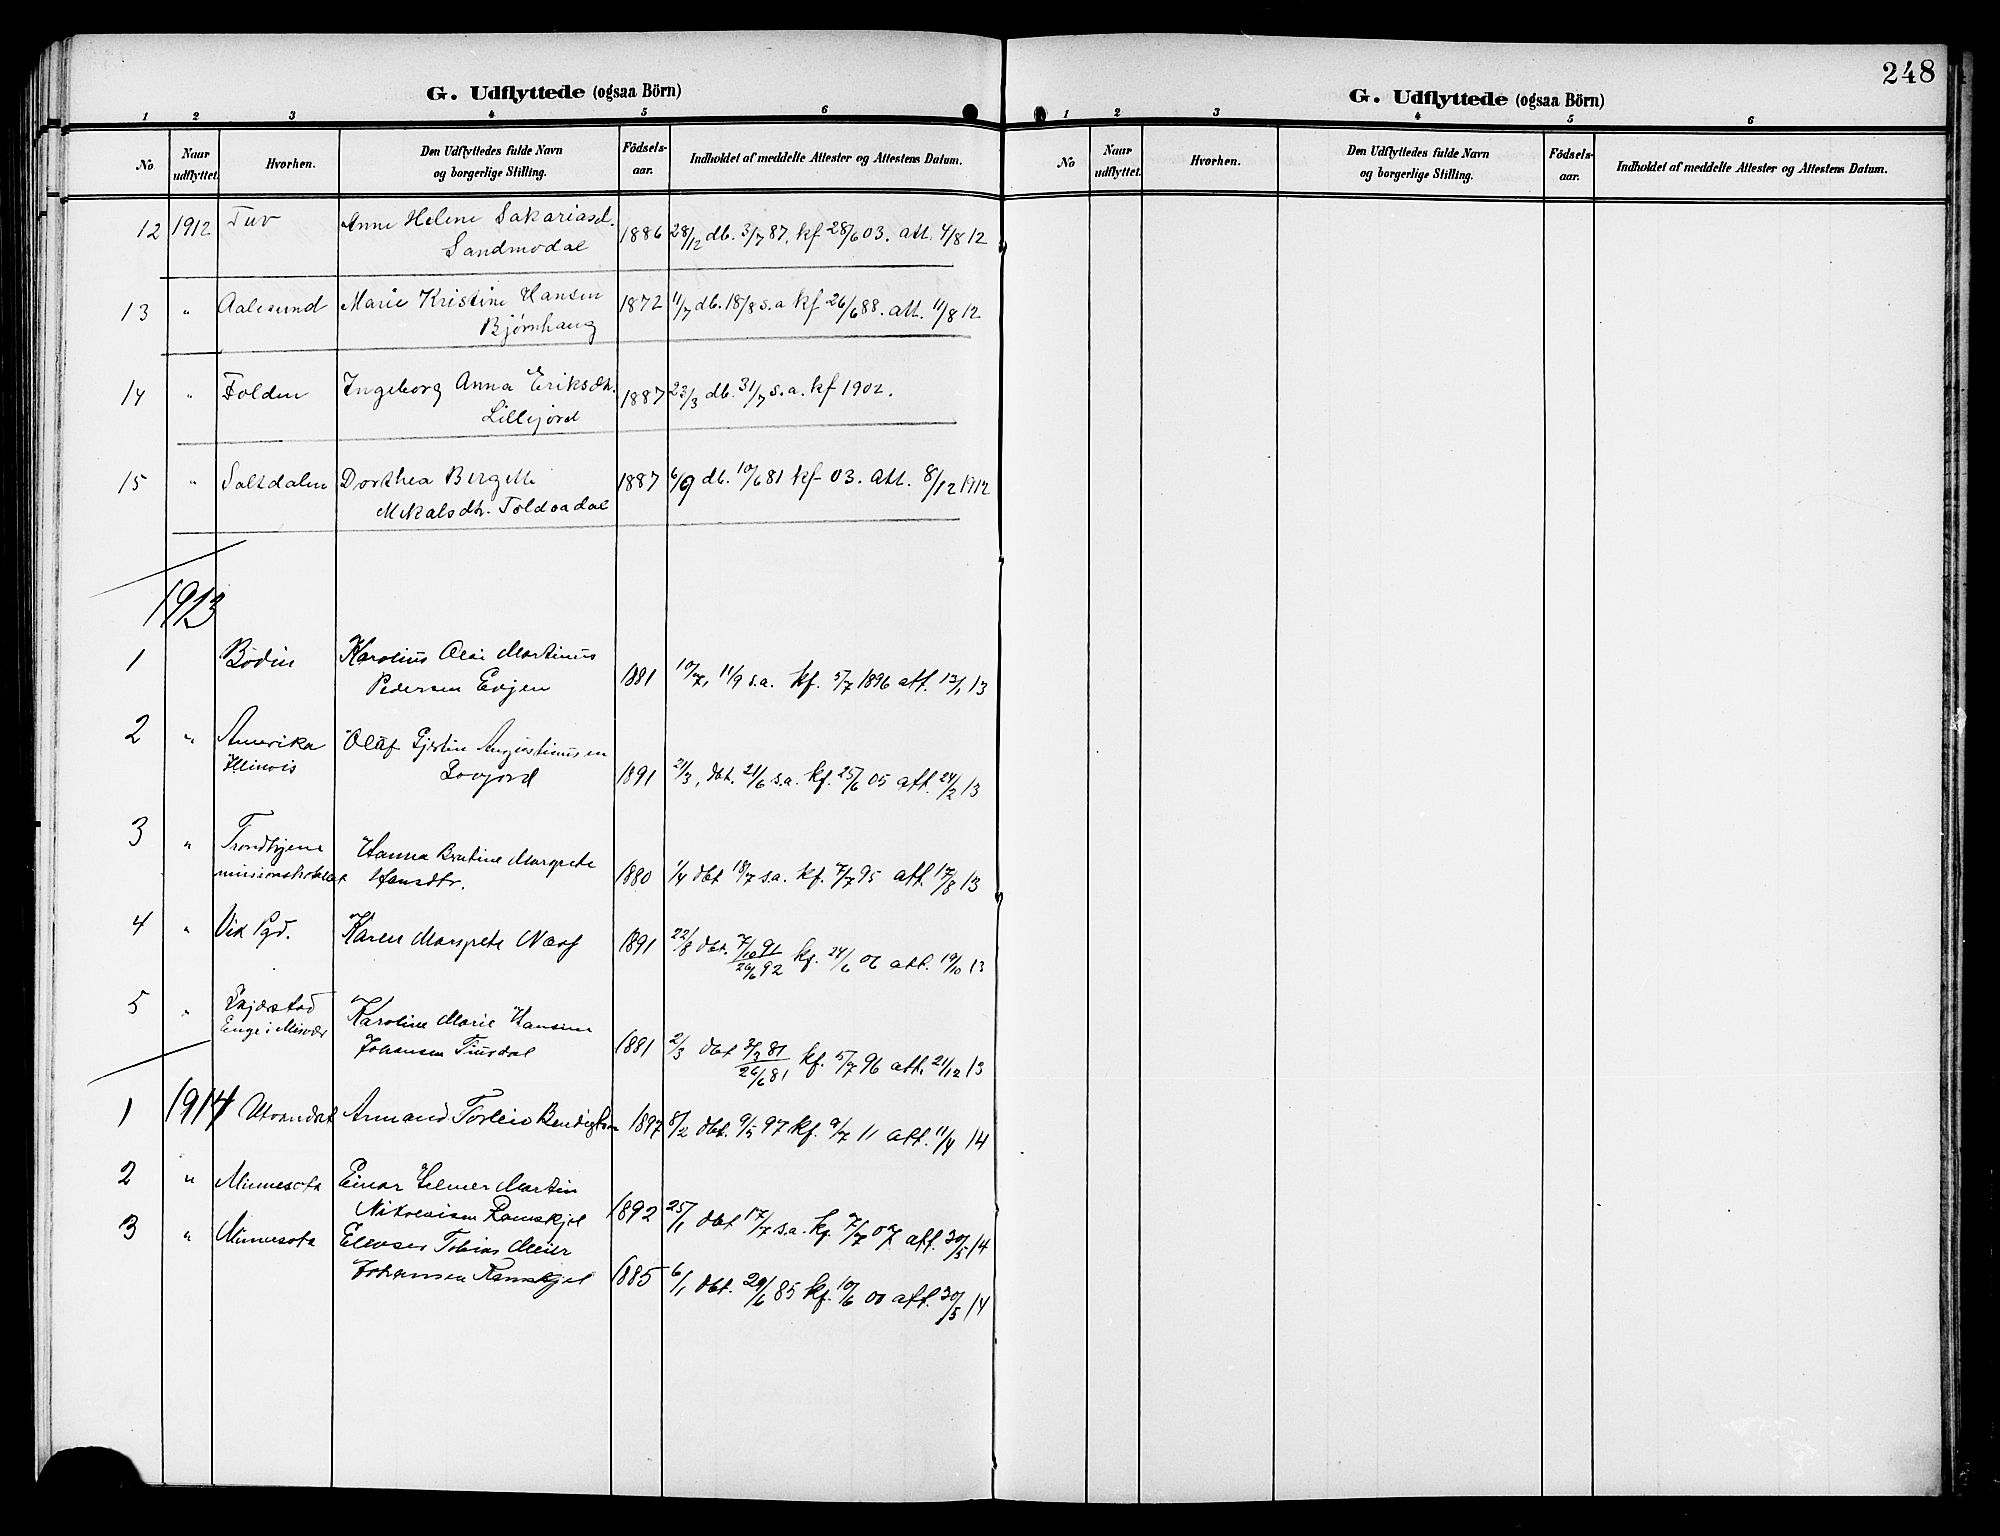 G. Udflyttede (ogsaa Börn)
1 2 3 4 5 6
No. Naar udflyttet. Hvorhen. Den Udflyttedes fulde Navn og borgerlige Stilling. Födsels-aar. Indholdet af meddelte Attester og Attestens Datum.
12 1912 Tuv Anne Helene Sakariasd. 1886 28/12 db. 3/7 87. kf 28/6 03. att. 4/8 12
Sandmodal
13 " Aalesund Marie Kristine Hansen 1872 11/7 db. 18/8 s.a kf 26/6 88. att. 11/8 12
Bjørnhaug
14 " Folden Ingeborg Anna Eriksdtr. 1887 23/3 db. 31/7 s.a. kf 1902.
Lillejord
15 " Saltdalen Dorthea Bergette 1887 6/9 db. 10/6 81 kf 03. att. 8/12 1912
Mikalsdtr.
1913
1 Bodin Karolius Olai Martinus
Pedersen Evjen 1881 10/7, 11/9 s.a. kf. 5/7 1896 att. 13/1 13
2 " Amerika Olaf Augustinussen
Illinois 1891 21/3, dbt. 21/6 s.a. kf. 25/6 05 att. 24/2 13
3 " Trondhjem Hanna Margrete
Hansdtr. 1880 1/4 dbt 18/7 s.a. kf. 7/7 95 att. 17/8 13
4 " Vik Pgd. Karen Margrete Næss 1891 22/8 dbt. 7/10 91 kf. 24/6 06 att. 19/10 13
26/6 92
5 " Skjerstad Karoline Marie Hansine
Enge i Misvær Johansen 1881 2/3 dbt 3/3 81 kf. 5/7 96 att. 21/12 13
26/6 81
1 1914 Armand Torleiv 1897 8/2 dbt. 9/5 97 kf. 9/7 11 att. 11/4 14
2 " Minnesota Einar Hilmer Martin
Nikolaisen Ramskjel 1892 25/1 dbt 17/7 s.a. kf 7/7 07 att. 30/5 14
3 " Minnesota Tobias Meier
Johansen Ramskjel 1885 6/1 dbt. 29/6 85 kf. 10/6 00 att. 30/5 14
248
G. Udflyttede (ogsaa Börn)
1 2 3 4 5 6
No Naar udflyttet. Hvorhen. Den Udflyttedes fulde Navn og borgerlige Stilling. Födsels-aar. Indholdet af meddelte Attester og Attestens Datum.